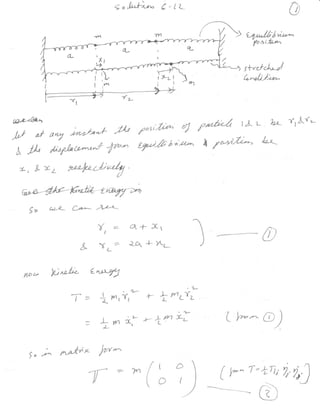 Solution 6-12
1
m m Equilibrium position
a a a
x₁ x₂ stretched condition
m m
r₁ r₂
let at any instant the position of particle 1 & 2 be r₁ & r₂
& the displacement from equilibrium position be
x₁ & x₂ respectively.
So we can see
r₁ = a + x₁
& r₂ = 2a + x₂ — 1
now kinetic energy
T = ½ m₁ṙ₁² + ½ m₂ṙ₂²
= ½ m ẋ₁² + ½ m ẋ₂² (from 1)
So in matrix form
T = m ( 1 0 (from T = ½ Tᵢⱼ η̇ᵢ η̇ⱼ)
0 1 ) — 2